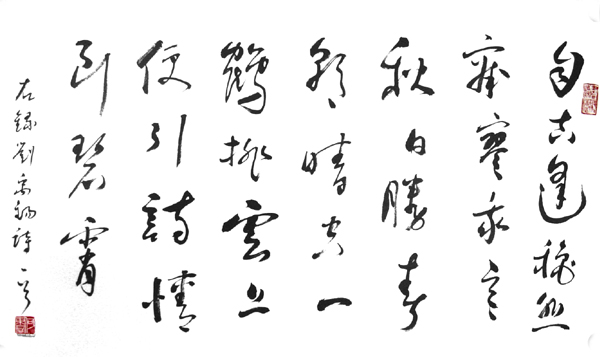 自古逢秋悲
寂寥我言
秋日勝春
朝晴空一
鶴排雲上
便引詩情
到碧霄
右錄劉禹錫詩